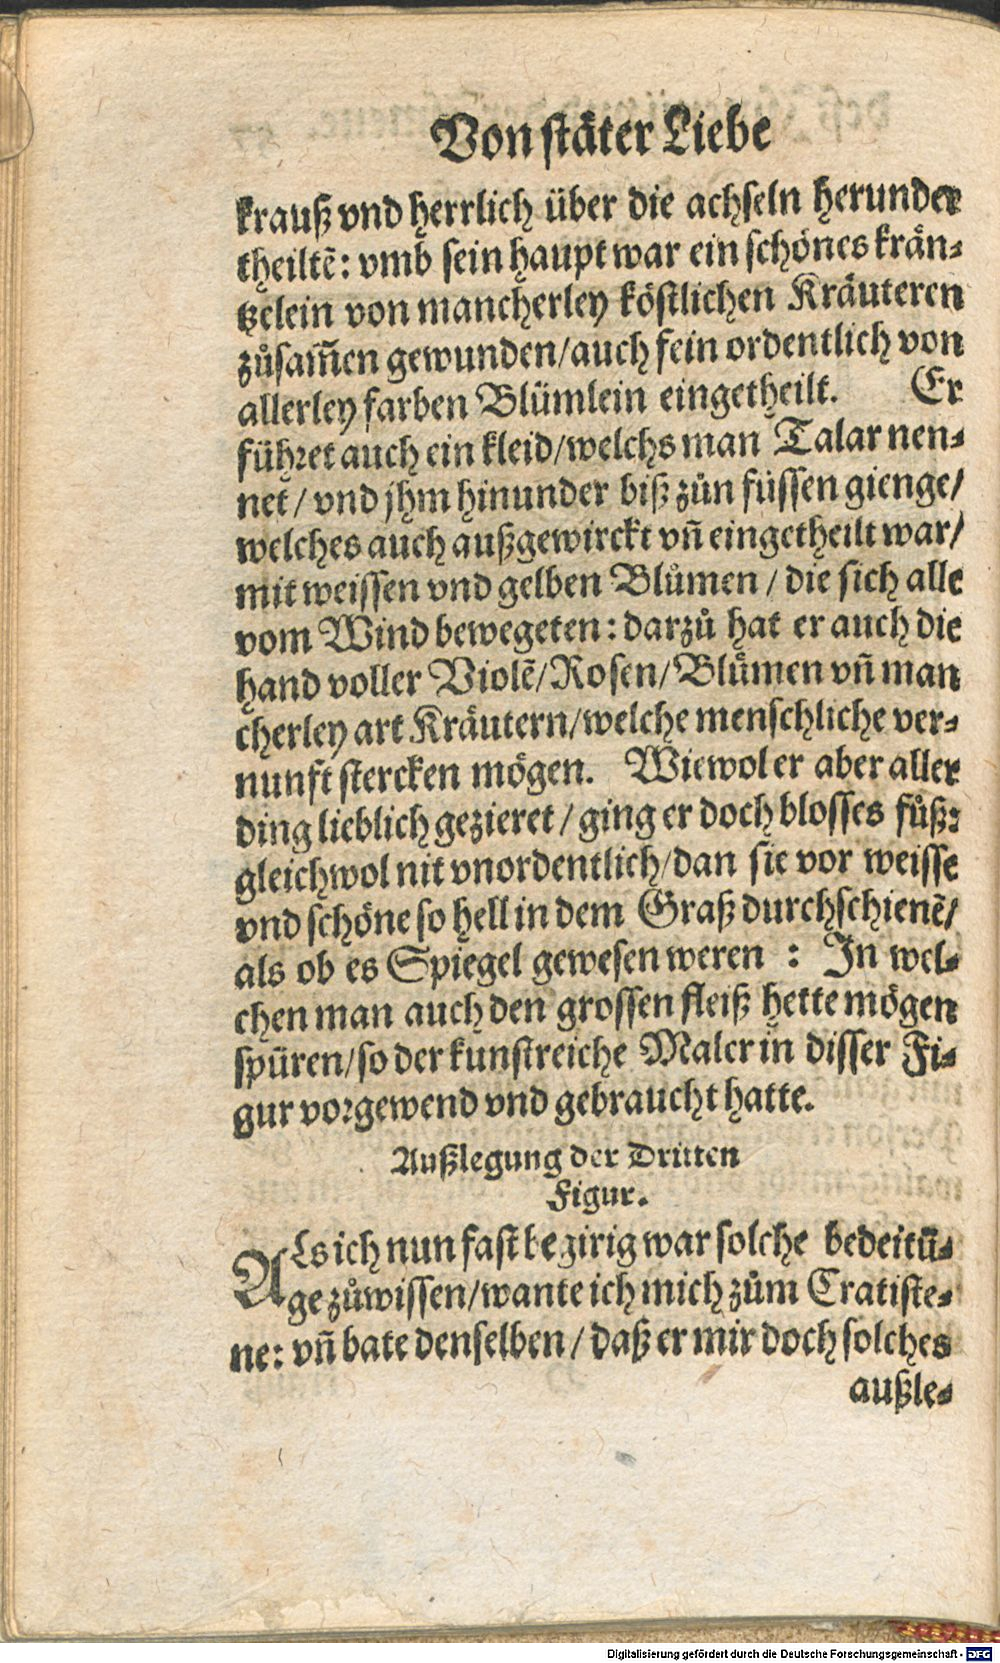 Von stäter Liebe
krauß vnd herrlich über die achseln herunder
theiltẽ: vmb sein haupt war ein schönes krän-
tzelein von mancherley köstlichen Kräuteren
zůsam̃en gewunden/auch fein ordentlich von
allerley farben Blümlein eingetheilt. Er
führet auch ein kleid/welchs man Talar nen-
net/vnd jhm hinunder biß zůn füssen gienge/
welches auch außgewirckt vñ eingetheilt war/
mit weissen vnd gelben Blůmen/die sich alle
vom Wind bewegeten: darzů hat er auch die
hand voller Violẽ/Rosen/Blůmen vñ man
cherley art Kräutern/welche menschliche ver-
nunft stercken mögen. Wiewol er aber aller
ding lieblich gezieret/ging er doch blosses fůß:
gleichwol nit vnordentlich/dan sie vor weisse
vnd schöne so hell in dem Graß durchschienẽ/
als ob es Spiegel gewesen weren : In wel-
chen man auch den grossen fleiß hette mögen
spüren/so der kunstreiche Maler in disser Fi-
gur vorgewend vnd gebraucht hatte.
Außlegung der Dritten
Figur.
ALs ich nun fast begirig war solche bedeitũ-
ge zůwissen/wante ich mich zům Cratiste-
ne: vñ bate denselben/daß er mir doch solches
außle-
Digitalisierung gefördert durch die Deutsche Forschungsgemeinschaft - DFG